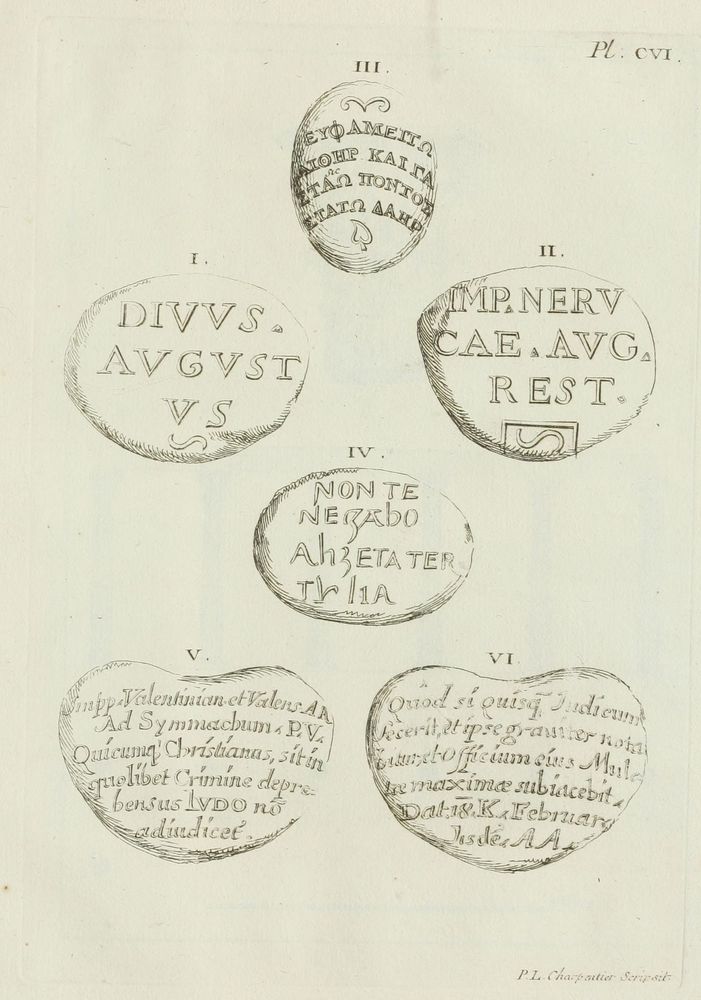 Pl. CVI.
III.
ΕΥΦΑΜΕΙΤΩ
ΑΙΘΗΡ ΚΑΙ ΓΑ
ΣΤΑΤΩ ΠΟΝΤΟΣ
ΣΤΑΤΩ ΔΑΗΡ
I.
DIVVS.
AVGVST
VS
II.
IMP. NERV
CAE. AVG.
REST.
IV.
NON TE
NEGABO
ETA TER
V.
Impp. Valentinian. et Valens AA
Ad Symmachum. P. V.
Quicumq' Christianus, sit in
quolibet Crimine depre-
hensus LVDO nō
adiudicet.
VI.
Quod si quisq. Iudicum
fecerit, et ipse graviter nota
bitur, et Officium eius Mul
tæ maximæ subiacebit.
Dat. 18. K. Februar.
Iisdē. AA.
P. L. Charpentier Scripsit.